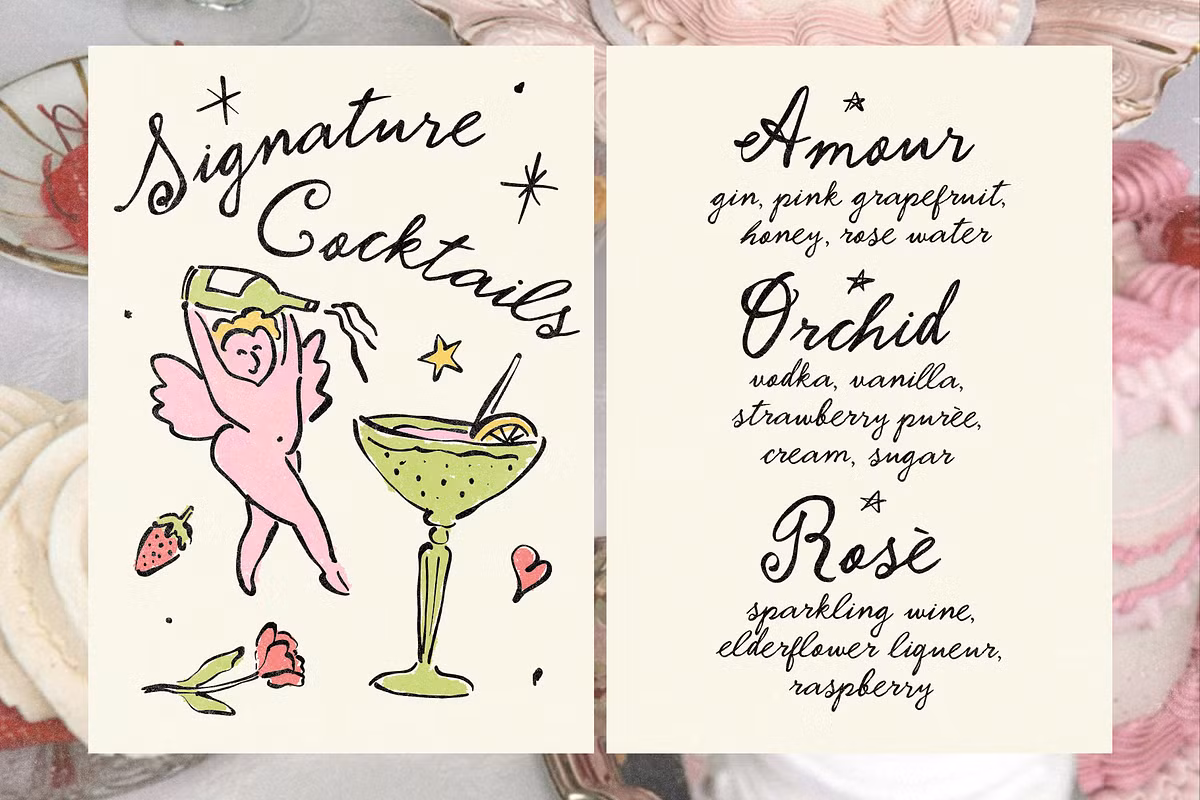 Signature
Cocktails
Amour
gin, pink grapefruit,
honey, rose water
Orchid
vodka, vanilla,
strawberry purèe,
cream, sugar
Rosè
sparkling wine,
elderflower liqueur,
raspberry